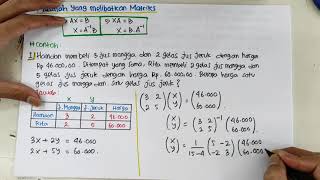 Masalah yang melibatkan Matriks
AX = B
X = A⁻¹ B
XA = B
X = B A⁻¹
Contoh
1. Hamdan membeli 3 jus mangga dan 2 gelas jus jeruk dengan harga
Rp 46.000,00. Ditempat yang sama, Rita membeli 2 jus mangga dan
5 gelas jus jeruk dengan harga Rp 60.000,00. Berapa harga satu
gelas jus mangga dan satu gelas jus jeruk?
x y Harga
Hamdan 3 2 46.000
Rita 2 5 60.000
3x + 2y = 46.000
2x + 5y = 60.000
(3 2
2 5) (x
y) = (46.000
60.000)
(x
y) = (3 2
2 5)⁻¹ (46.000
60.000)
(x
y) = 1/(15-4) (5 -2
-2 3) (46.000
60.000